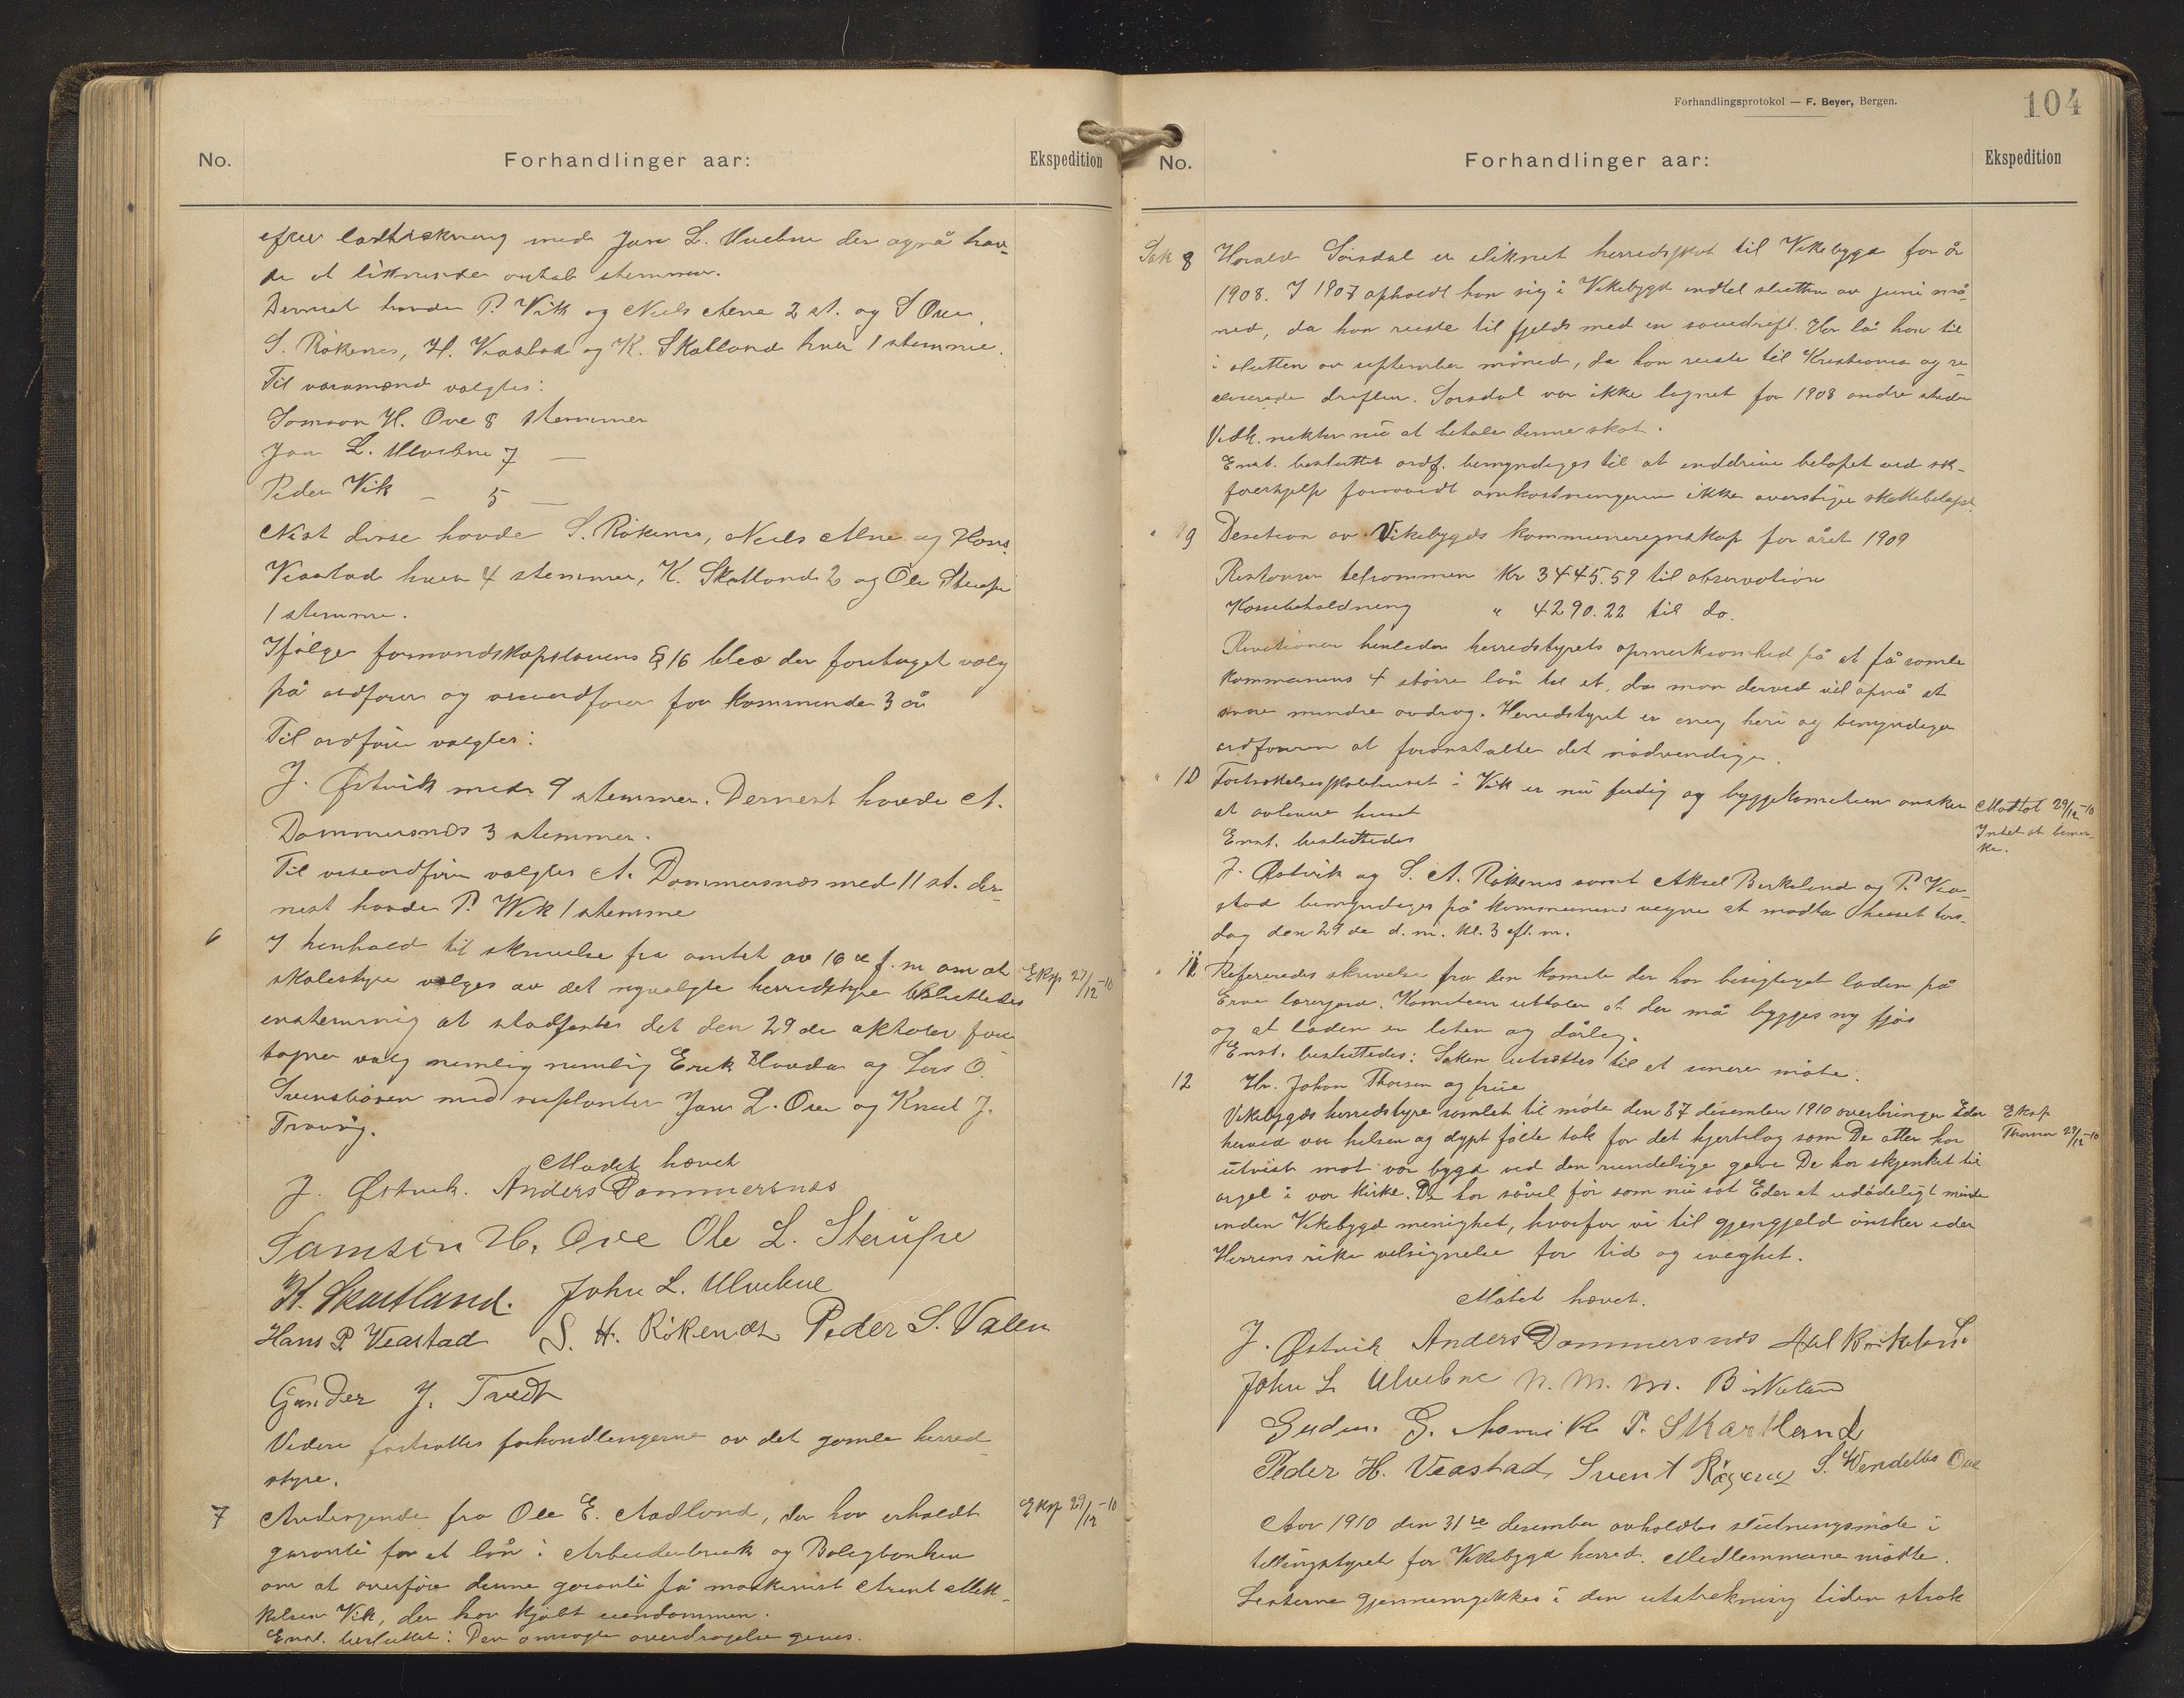 No.
Forhandlinger aar:
Ekspedition
efter lodtrekning med Jon L. Ulvebne der også hav-
de et liknende antal stemmer.
Dernest havde P. Vik og Niels Alne 2 st. og S Ove,
S. Rökenes, H. Veastad og K. Skatland hver 1 stemme.
Til varamend valgtes:
Samson H. Ove 8 stemmer
Jon L. Ulvebne 7 —
Peder Vik – 5 —
Nest disse havde S. Rökenes, Neils Alne og Hans
Veastad hver 4 stemmer, K. Skatland 2 og Ole Sterupe
1 stemme.
Ifölge formandskapslovens § 16 blev der foretaget valg
på ordförer og viseordförer for kommende 3 år
Til ordförer valgtes:
J. Østvik med 9 stemmer. Dernest havde A.
Dommersnes 3 stemmer.
Til viseordförer valgtes A. Dommersnes med 11 st. der-
nest havde P. Wik 1 stemme
6 I henhold til skrivelse fra amtet av 16 de f. m om at
skolestyre velges av det nyvalgte herredstyre besluttedes
Eksp 27/12-10
enstemmig at stadfeste det den 29 de oktober fore-
tagne valg nemlig nemlig Erik Hovda og Lars O.
Svensbøen med suplanter Jon L. Ove og Knut J.
Tråvåg.
Mødet hævet
J. Østvik. Anders Dommersnes
Samson H. Ove Ole L. Sterupe
K. Skartland. John L. Ulvebne
Hans P. Veastad S. H. Rökenes Peder S. Valen
Gunder J. Tvedt
Videre fortsattes forhandlingerne av det gamle herred-
styre.
7 Andragende fra Ole E. Aadland, der har erholdt
Eksp 29/12-10
garanti for et lån i Arbeiderbruk og Boligbanken
om at overföre denne garanti på maskinist
Vik, der har kjöbt eiendommen.
Enst. besluttet: Den ansøgte overdragelse gives.
Forhandlingsprotokol — F. Beyer, Bergen.
104
No.
Forhandlinger aar:
Ekspedition
Sak 8 Harald Sörsdal er iliknet herredsskat til Vikebygd for år
1908. I 1907 opholdt han sig i Vikebygd indtil slutten av juni må-
ned, da han reiste til fjelds med en sauedrift. Her lå han til
i slutten av september måned, da han reiste til Kristiania og re-
aliserede driften. Sörsdal var ikke lignet for 1908 andre steder
Vedk. nekter nu at betale denne skat.
Enst. besluttet ordf. bemyndiges til at inddrive belöpet ved sak-
förerhjelp forsåvidt omkostningerne ikke overstiger skattebelöpet.
" 9 Desetion av Vikebygds kommuneregnskap for året 1909
Restanser tilsammen Kr 3445.59 til observation
Kassebeholdning " 4290.22 til do.
Revisionen henleder herredstyrets opmerksomhed på at få samle
kommunens 4 större lån til et, da man derved vil opnå at
svare mindre avdrag. Herredstyret er enig heri og bemyndiger
ordföreren at foranstalte det nödvendige.
" 10 Fortsettelsesskolehuset i Vik er nu ferdig og byggekomiteen önsker
at avlevere huset
Mottat 29/12-10
Intet at bemer-
ke.
Enst. besluttedes
J. Østvik og S. A. Rökenes samt Aksel Birkeland og P. Vea-
stad bemyndiges på kommunens vegne at modta huset tors-
dag den 29 de d. m. kl. 3 eft. m.
" 11 Refereredes skrivelse fra den komite der har besigtiget laden på
Erve lærerjord. Komiteen uttaler at der må bygges ny fjös
og at laden er liten og dårlig.
Enst. besluttedes: Saken utsættes til et senere möte.
12 Hr. Johan Thorsen og frue
Vikebygds herredstyre samlet til möte den 27 desember 1910 overbringer Eder
Eksp
herved vor hilsen og dypt fölte tak for det hjertelag som De atter har
Thorsen 29/12-10
utvist mot vor bygd ved den rundelige gave De har skjenket til
orgel i vor kirke. De har såvel för som nu sat Eder et udödeligt minde
inden Vikebygd menighet, hvorfor vi til gjengjeld önsker eder
Herrens rike velsignelse for tid og evighet.
Mötet hævet.
J. Østvik Anders Dommersnes Axel Birkeland
John L Ulvebne N. M. M. Birkeland
G. P. Skartland
Peder H. Veastad, S. Wendelbo Ove
Aar 1910 den 31 te desember avholdtes slutningsmöte i
tellingsstyret for Vikebygd herred. Medlemmene mödte.
Listerne gjennemgikkes i den utstrekning tiden strak